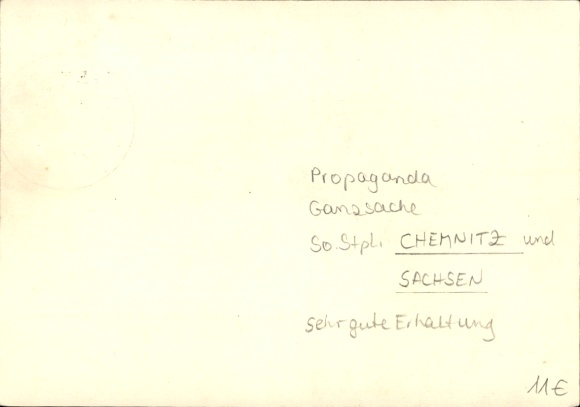 Propaganda
Ganzsache
So. Stpl. CHEMNITZ und
SACHSEN
Sehr gute Erhaltung
11€